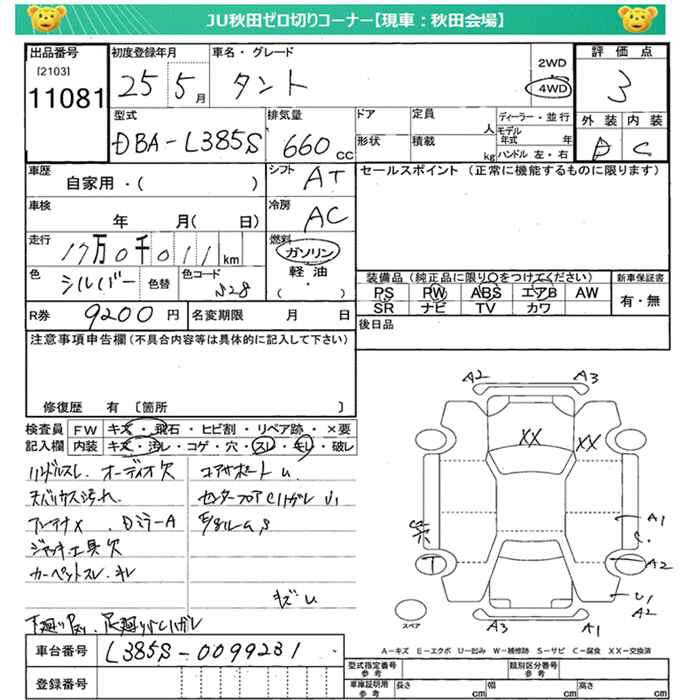 JU秋田ゼロ切りコーナー【現車：秋田会場】
出品番号 初度登録年月 車名・グレード 評価点
[2103]
11081
25 5月 タント 2WD 4WD 3
型式 排気量 ドア 定員 人 ディーラー・並行 外装 内装
DBA-L385S 660cc 形状 積載 kg モデル年式 年 ハンドル 左・右 D C
車歴 シフト セールスポイント (正常に機能するものに限ります)
自家用・( ) AT
車検 冷房
年 月( 日) AC
走行 燃料
17万0千011km ガソリン
軽油
・
( )
色 シルバー 色替 色コード S28
装備品(純正品に限り○をつけてください) 新車保証書
PS PW ABS エアB AW 有・無
SR ナビ TV カワ
R券 9200円 名変期限 月 日
後日品
注意事項申告欄(不具合内容等は具体的に記入して下さい)
修復歴 有 〔箇所 〕
検査員 FW キズ・飛石・ヒビ割・リペア跡・×要
記入欄 内装 キズ・汚レ・コゲ・穴・スレ・キレ・破レ
ハンドルスレ. オーディオ欠 コアサポートU
天バリウス汚れ
アンテナX . DミラーA
ジャッキ工具欠
カーペットスレ. キレ
キズU
A2 A3
XX XX
A1
C.
A2
U1
A2
A3 A1
スペア
A-キズ E-エクボ U-凹み W-補修跡 S-サビ C-腐食 XX-交換済
車台番号 L385S-0099231
登録番号
型式指定番号 参考 類別区分番号 参考
車庫証明用 参考 長さ cm 幅 cm 高さ cm